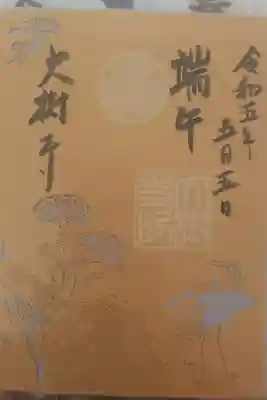 令和五年
五月五日
端午
大樹寺